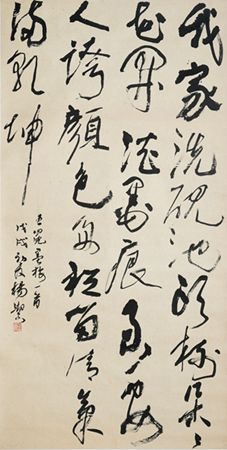 我家洗硯池頭樹朵〻
花開淡墨痕不要
人誇顏色好祇留清氣
滿乾坤
王冕墨梅一首
戊戌初夏楊